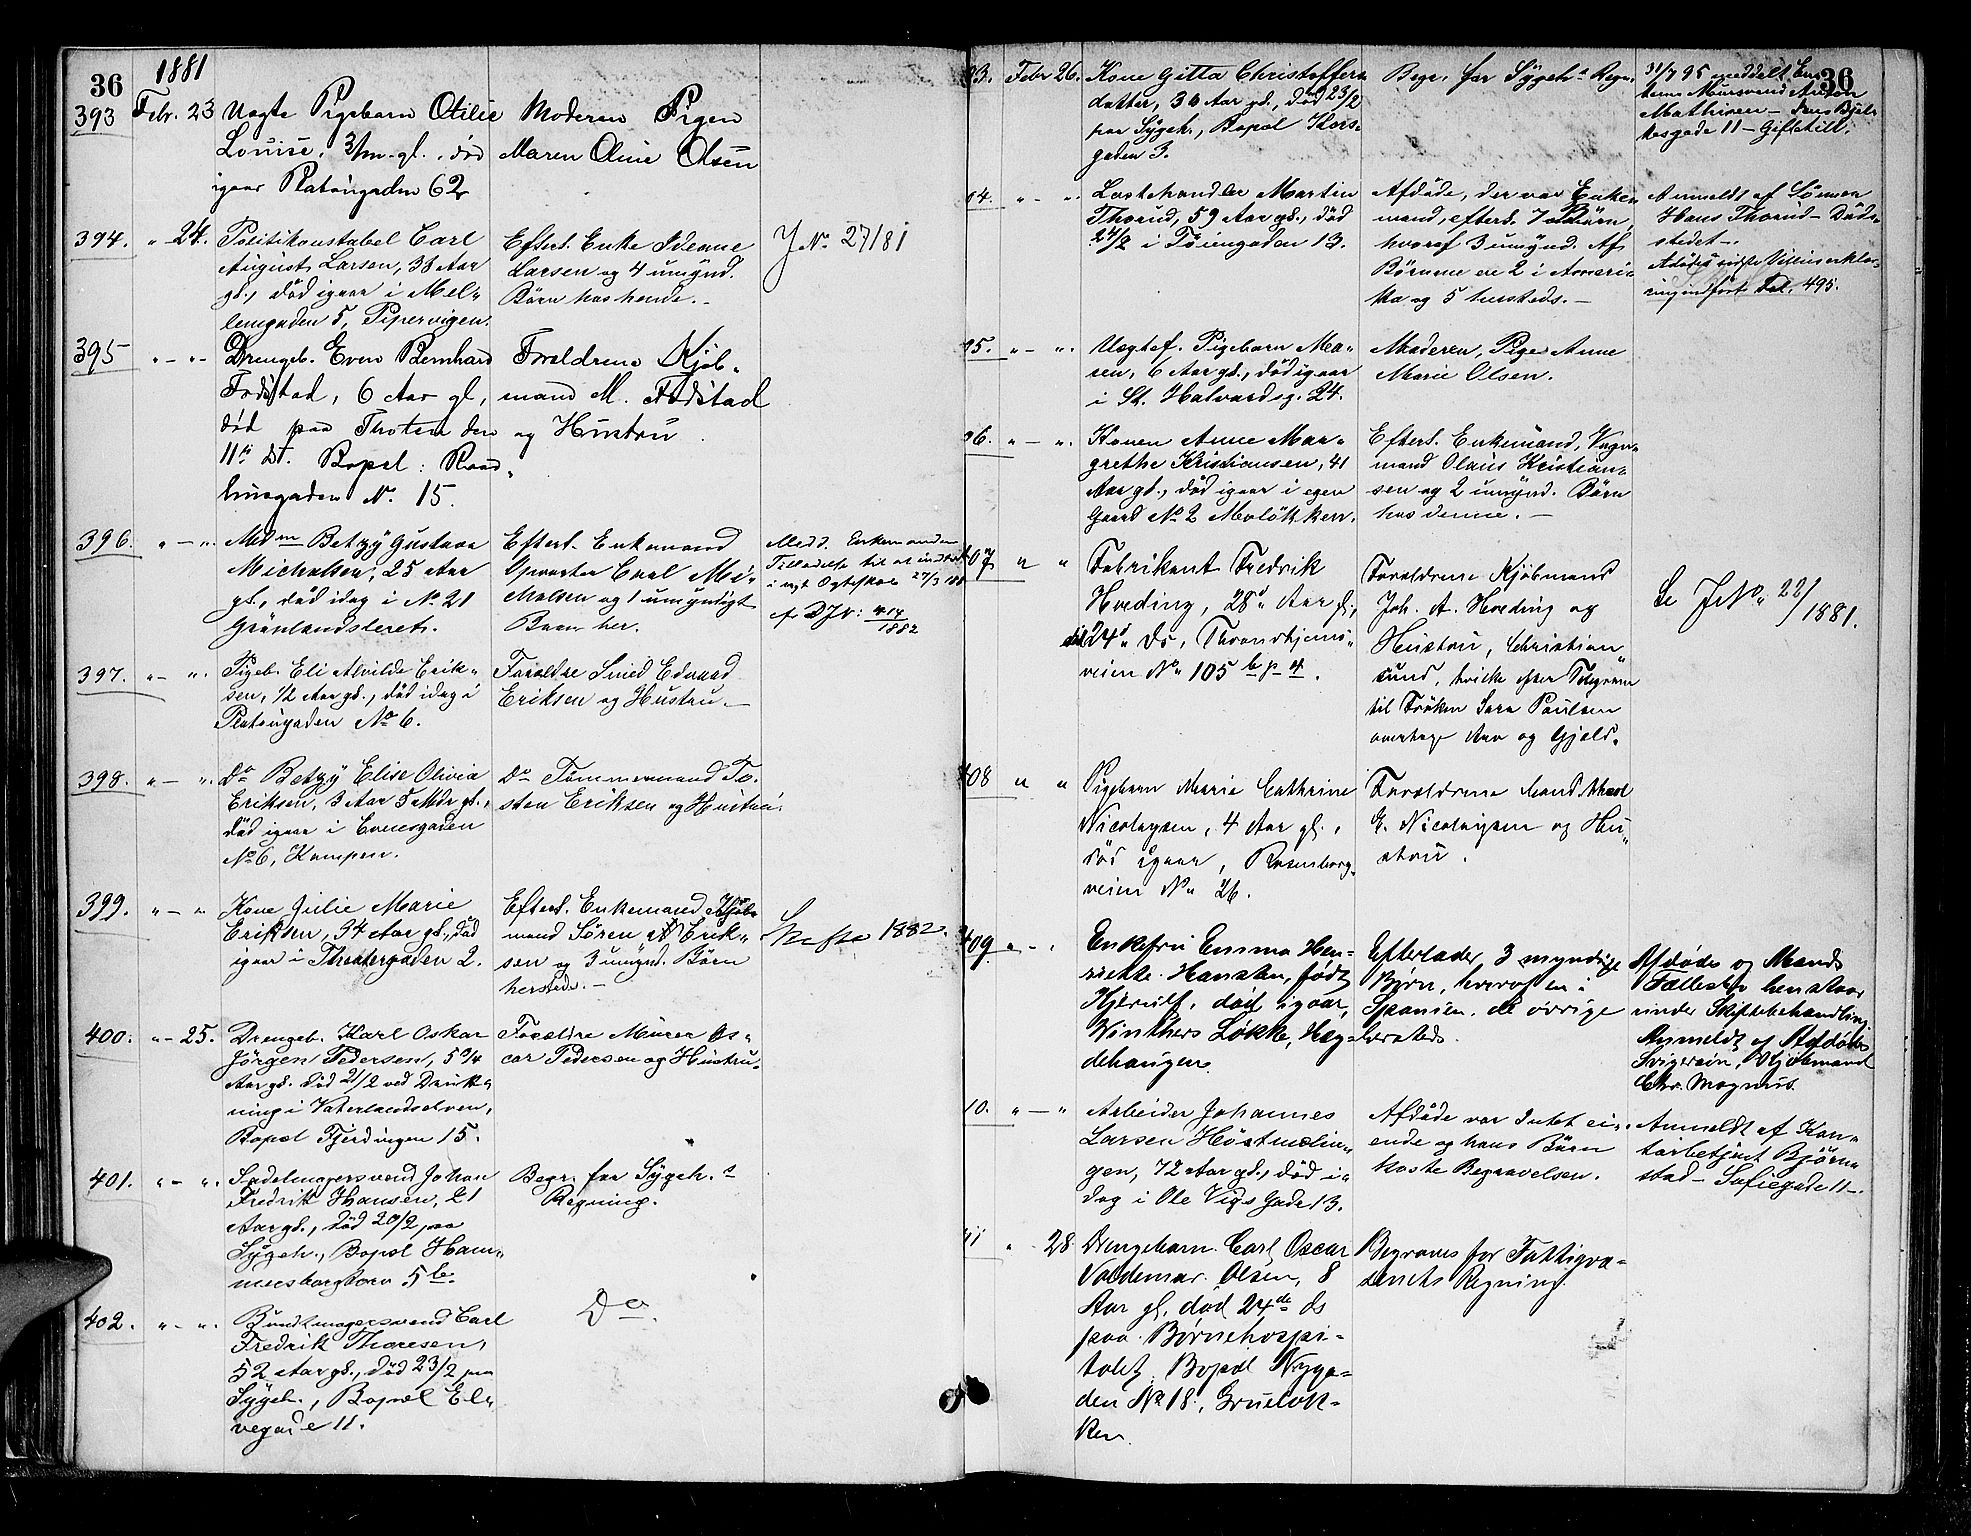 36
1881
393 Febr. 23 Uægte Pigebarn Otilie
Louise, 3/m. gl., død
igaar Platougaden 62
Moderen Pigen
Maren Oline Olsen
394. " 24. Politikonstabel Carl
August Larsen, 38 Aar
gl., död igaar i Mel-
lemgaden 5, Pipervigen.
Efterl. Enke
Larsen og 4 umynd.
Börn hos hende.
J No. 27/81
395 " - " Drengeb. Even Bernhard
Fodstad, 6 Aar gl,
död paa Thoten den
11te Dr. Bopæl: Raad-
husgaden No. 15.
Forældrene Kjöb-
mand M. Fodstad
og Hustru
396. " - " Mdm Betzy Gustava
Michalsen, 25 Aar
gl., död idag i No. 21
Grönlandsleret.
Efterl. Enkemand
Carl Mi-
chalsen og 1 umyndigt
Barn her.
Medd. Enkemanden
Tilladelse til at indtræde
i nyt Ægteskab 27/3
cf DJN: 414/1882
397. " - " Pigeb. Eli Alvilde Erik-
sen, 1/2 Aar gl., död idag i
Platougaden No 6.
Forældre Smed Edvard
Eriksen og Hustru.
398. " - " Do Betzy Elise Olivia
Eriksen, 3 Aar 5 Mdr gl.,
död igaar i Enersgaden
No 6, Kampen.
Do Tömmermand To-
sten Eriksen og Hustru.
399. " - " Kone Julie Marie
Eriksen, 34 Aar gl., död
igaar i Theatergaden 2.
Efterl. Enkemand Kjöb-
mand Sören A Erik-
sen og 3 umynd. Börn
hersteds. -
Skifte 1882.
400. " - 25. Drengeb. Karl Oskar
Jörgen Pedersen, 5 3/4
Aar gl. död 21/2 ved Drukk-
ning i Vaterlandselven,
Bopæl Fjerdingen 15.
Forældre Murer Os-
car Pedersen og Hustru.
401. " - " Sadelmagersvend Johan
Fredrik Hansen, 21
Aar gl., död 20/2 paa
Sygeh., Bopæl Ham-
mersborgtorv 5 b.
Begr. for Sygeh.s
Regning.
402. " - " Bundtmagersvend Carl
Fredrik Thoresen,
52 Aar gl., död 23/2 paa
Sygeh., Bopæl El-
vegade 11.
Do.
36
03. Febr 26. Kone Gitta Christoffers-
datter, 36 Aar gl., död 23/2
paa Sygeh., Bopæl Thors-
gaden 3.
Begr. for Sygeh.s Regn.
31/7 95 meddelt Enke-
Anton
Mathisen - Jens Bjel-
kesgade 11 - Giftetill.
04. " - " Lastehandler Martin
Thorud, 59 Aar gl., död
24/2 i Töiengaden 13.
Afdöde, der var Enke-
mand, efterl. 7 Börn,
hvoraf 3 umynd. Af
Börnene ere 2 i Ameri-
ka og 5 hersteds. -
Anmeldt af Sönnen
Hans Thorud - Döds-
stedet -.
Afdödes sidste Villieserklæ-
ring indfört Fol. 495.
05. " - " Uægtef. Pigebarn Ma-
ren, 6 Aar gl., död igaar
i St. Halvardsg. 24.
Moderen, Pige Anne
Marie Olsen.
06. " - " Konen Anne Mar-
grethe Kristiansen, 41
Aar gl., död igaar i egen
Gaard No 2 Meløkken.
Efterl. Enkemand, Vogn-
mand Olaus Kristian-
sen og 2 umynd. Börn
hos denne. -
407 " " Fabrikant Fredrik
Hveding, 28 Aar gl.,
död 24de ds, Throndhjems-
veien No 105 b
Forældrene Kjöbmand
Joh. A. Hveding og
Hustru, Christian-
sund, hvilke efter Telegram
til Fröken Sara Paulsen
overtage Arv og Gjæld.
Se J No 22/1881.
408 " " Pigebarn Marie Cathrine
Nicolaysen, 4 Aar gl.,
död igaar, Rosenborg-
veien No 26.
Forældrene
G. Nicolaysen og Hu-
stru.
409 " - " Enkefru Emma Hen-
riette Hansten, født
Hjerulf, död igaar,
Winthers Løkke, Hæg-
dehaugen.
Efterlader 3 myndige
Børn, hvoraf en i
Spanien, de øvrige
hersteds.
Afdødes og Mands
Fællesbo henstaar
under Skiftebehandling
Anmeldt af Afdødes
Svigersøn, Kjøbmand
Chr. Magnus.
10. " - " Arbeider Johannes
Larsen Höstmælin-
gen, 72 Aar gl., död i-
dag i Ole Vigs Gade 13.
Afdöde var Intet ei-
ende og hans Börn
koste Begravelsen.
Anmeldt af Kon-
torbetjent Bjørn-
stad - Sofiegade 11 -.
11 " 28 Drengebarn Carl Oscar
Valdemar Olsen, 8
Aar gl, død 24de ds
paa Børnehospi-
talet. Bopæl Nyga-
den No 18, Grueløk-
ken.
Begraves for Fattigvæ-
senets Regning.